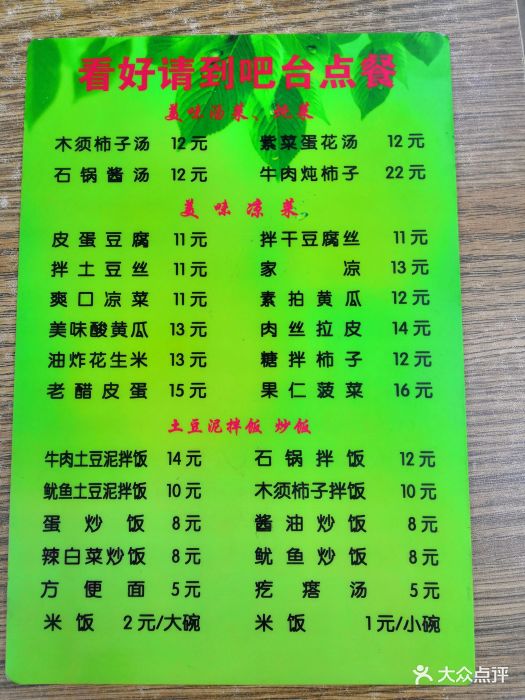 看好请到吧台点餐
美味汤菜、炖菜
木须柿子汤 12元 紫菜蛋花汤 12元
石锅酱汤 12元 牛肉炖柿子 22元
美味凉菜
皮蛋豆腐 11元 拌干豆腐丝 11元
拌土豆丝 11元 家凉 13元
爽口凉菜 11元 素拍黄瓜 12元
美味酸黄瓜 13元 肉丝拉皮 14元
油炸花生米 13元 糖拌柿子 12元
老醋皮蛋 15元 果仁菠菜 16元
土豆泥拌饭 炒饭
牛肉土豆泥拌饭 14元 石锅拌饭 12元
鱿鱼土豆泥拌饭 10元 木须柿子拌饭 10元
蛋炒饭 8元 酱油炒饭 8元
辣白菜炒饭 8元 鱿鱼炒饭 8元
方便面 5元 疙瘩汤 5元
米饭 2元/大碗 米饭 1元/小碗
大众点评